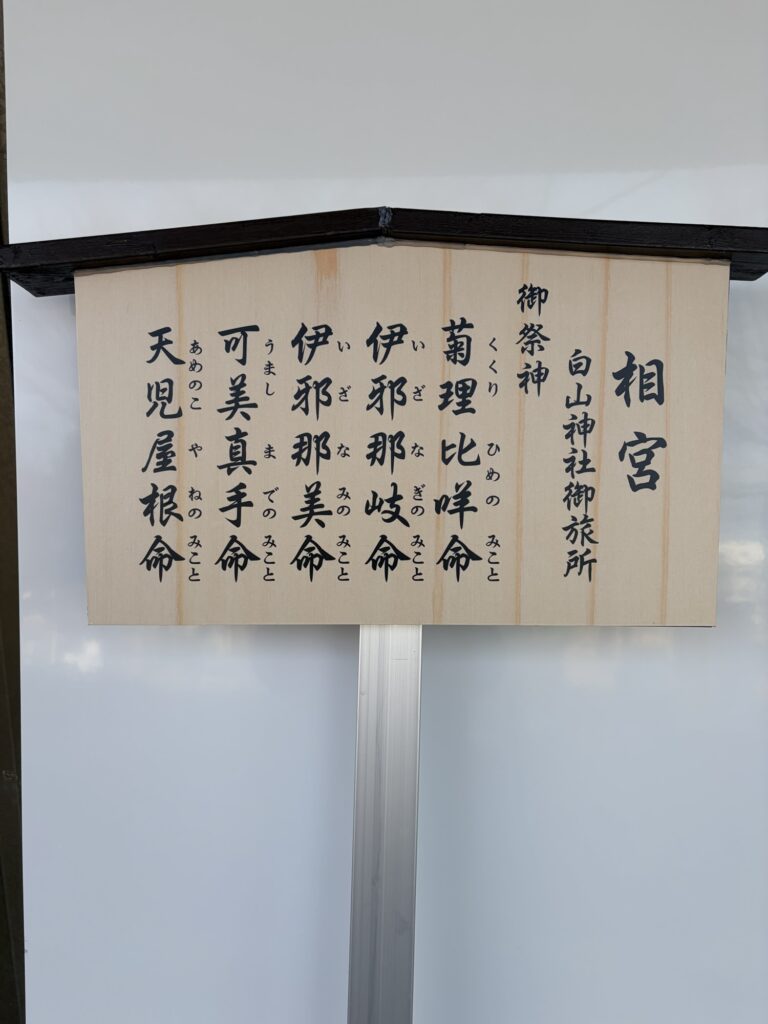 相宮
白山神社御旅所
御祭神
菊理比咩命
くくり ひめの みこと
伊邪那岐命
いざなぎの みこと
伊邪那美命
いざなみの みこと
可美真手命
うまし までの みこと
天児屋根命
あめのこ や ねの みこと